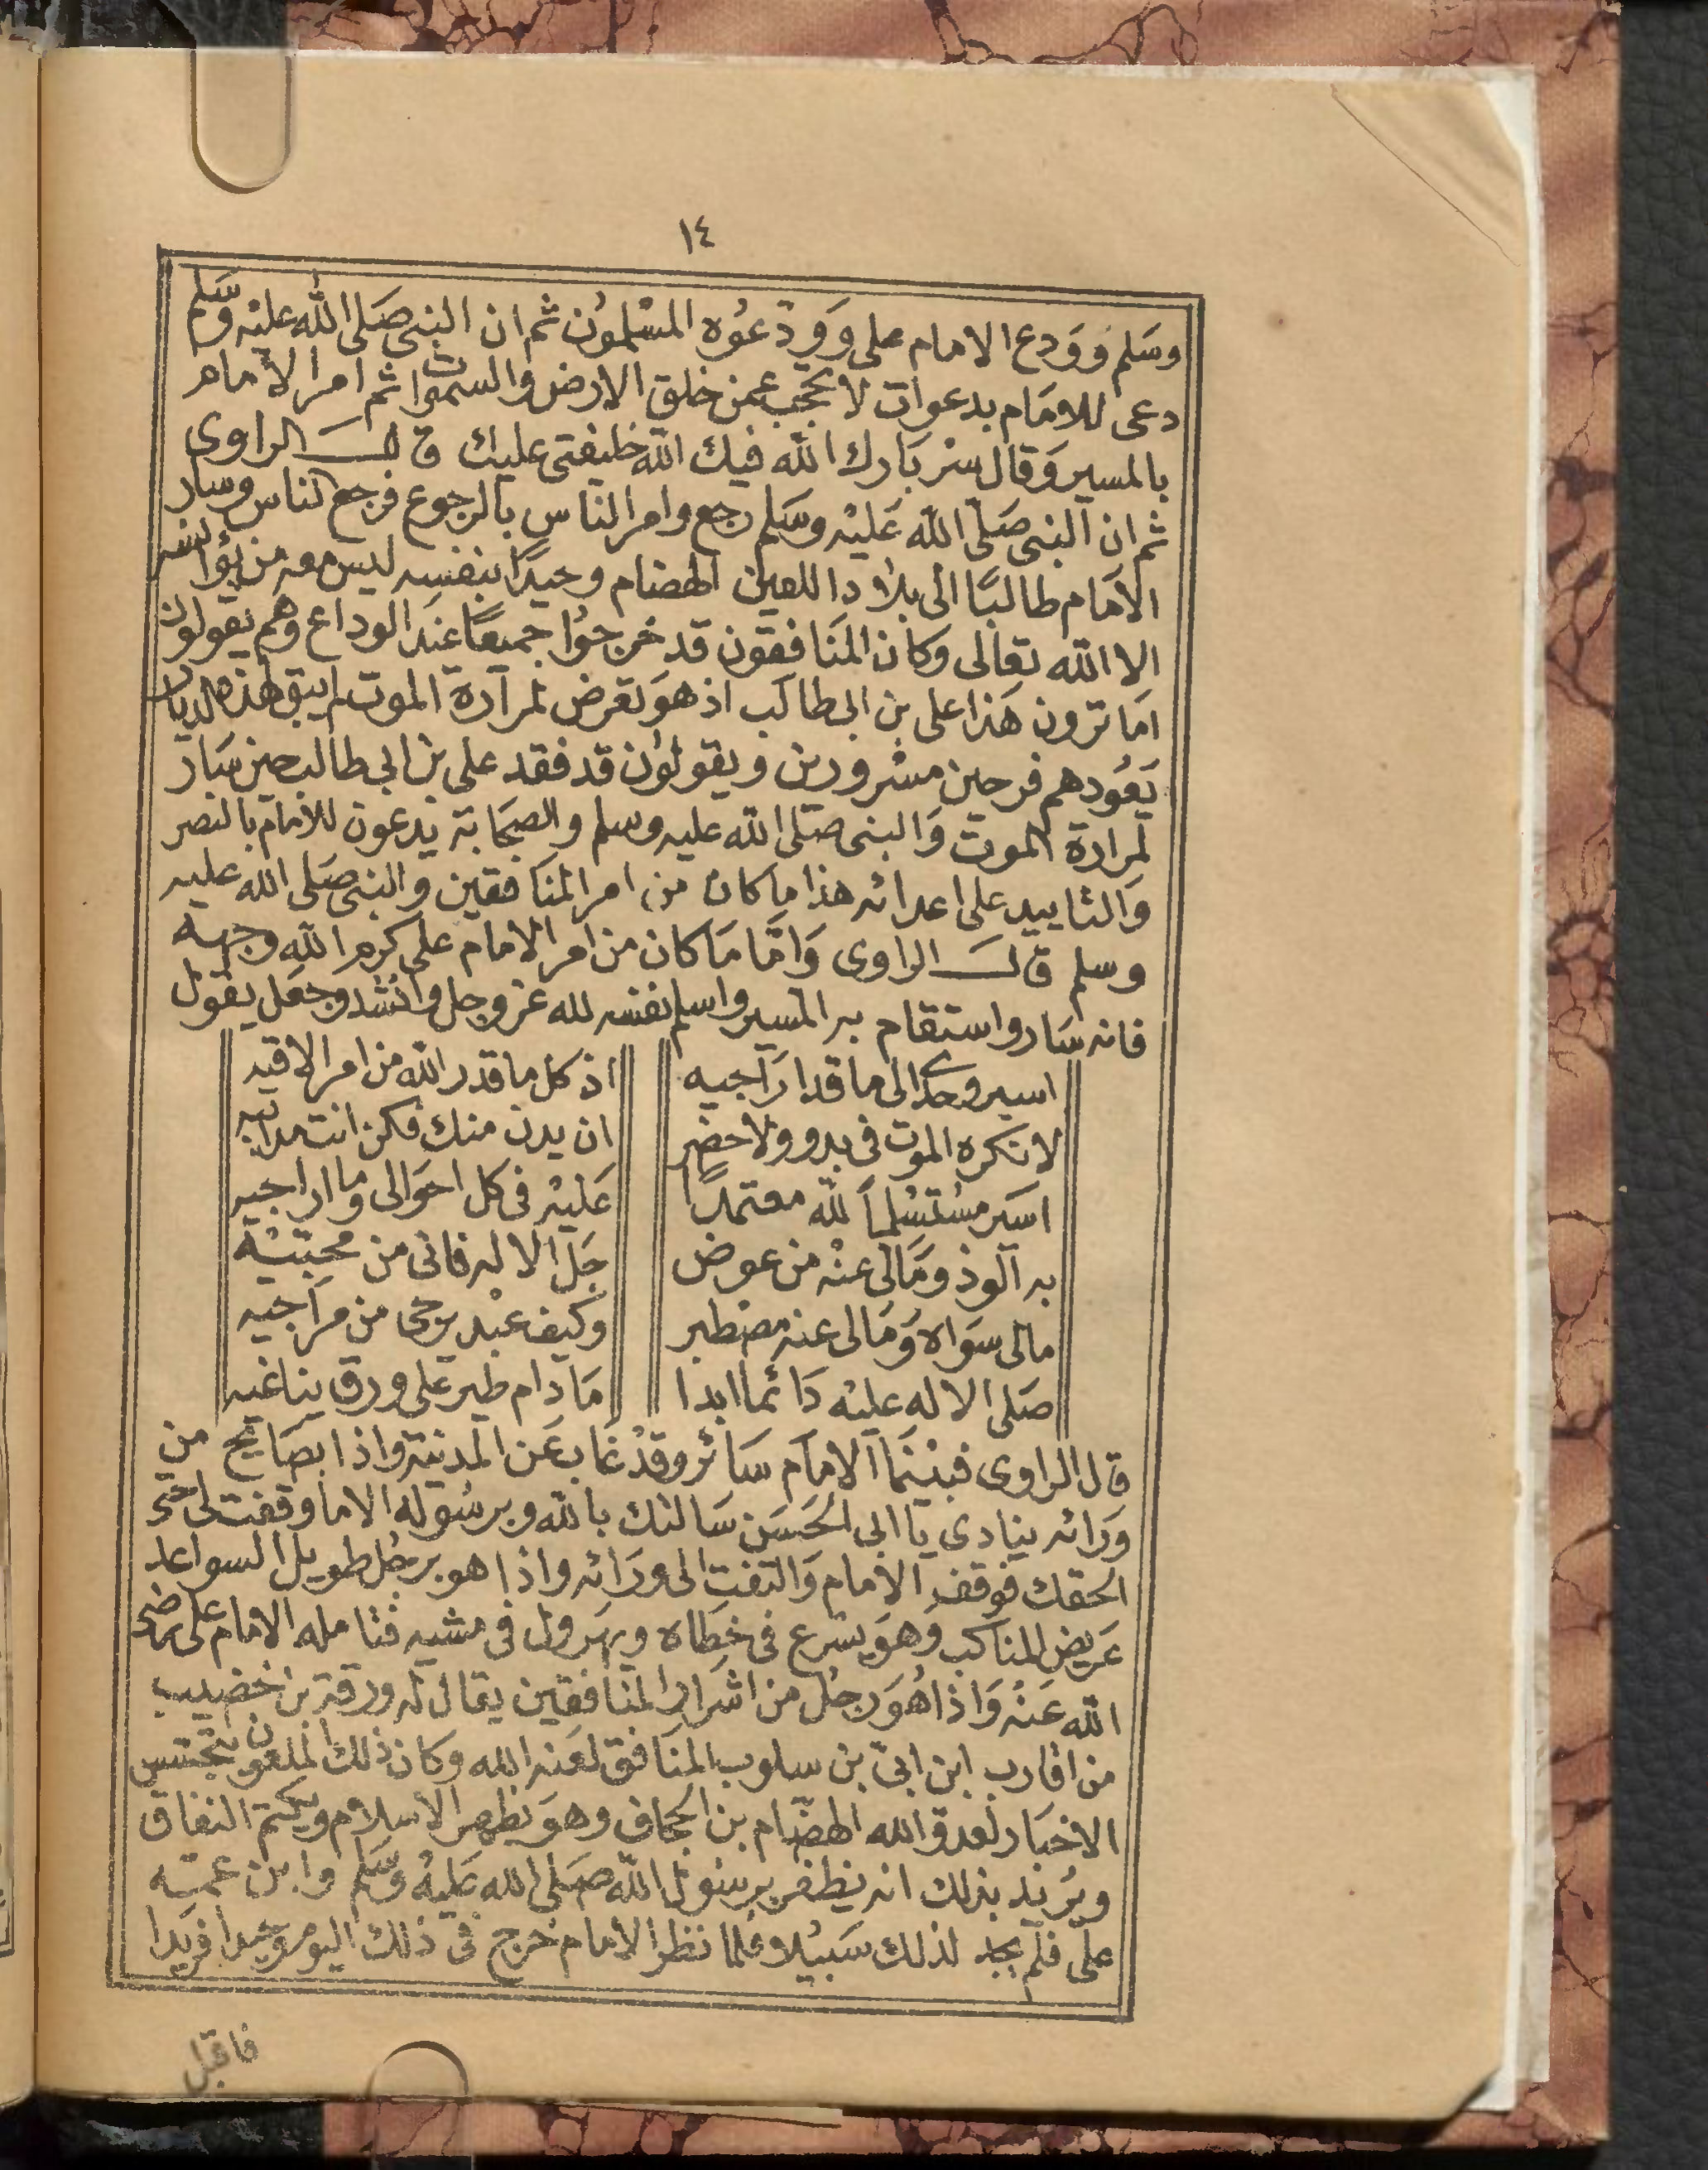 ١٤
وسَلم وَوَدع الامام على وَوَدعُوه المسْلموُن ثم ان النبى صَلى الله عليْه وسَلم
دعى للامَام بدعوات لا تحجب عمن خلق الارض والسموات ثم امر الامام
بالمسير وَقال سرْ بَارك الله فيك الله خليفتى عليك قالـــ الراوى
ثم ان النبى صَلى الله عَليْه وسَلم رجع وامر الناس بالرجوع فرجع الناس وسار
الامَام طالبًا الى بلاد اللعين الهضام وحيدًا بنفسه ليس معه من يؤانسه
الا الله تعالى وكان المنَافقون قد خرجوُا جميعًا عند الوداع وهم يقولون
امَا ترون هَذا على بن ابى طالب اذ هوَ تعرض لمرارة الموت لم يبق لهذه الديار
يَعُود هم فرحين مسْرورين ويقولوُن قد فقد على بن ابى طالب حين سَار
لمرارة الموت وَالنبى صَلى الله عليه وسلم والصحَابة يدعون للامَام بالنصر
وَالتاييد على اعدائه هذا ما كان من امر المنَافقين والنبى صَلى الله عليه
وسلم قالـــ الراوى وَامّا مَا كان من امر الامام على كرم الله وجهه
فانه سَار واستقام به المسير واسلم نفسه لله عز وجل وانشد وجعَل يقول
اسير وحدى الى ما قد اراجيه اذ كل ما قدر الله من امر الاقيه
لا نكره الموت فى بدو ولا حضر ان يدن منك فكن انت مدانيه
اسَير مسْتسْلماً لله معتمدًا عَليْه فى كل احوَالى وما اراجيه
به الوذ ومَالى عنْه من عوض جَل الاله فانى من محبتيْه
مالى سوَاه وَمَالى عنه مصْطبر وكيف عبْد يرجى من مراجيه
صَلى الاله عليْه دَائما ابدا مَا دام طير على ورق يناغيه
قال الراوى فبيْنمَا الامَام سَائر وقدْ غاب عَن المدينة واذا بصَايح من
وَرائه ينادى يَا ابى الحَسَن سَالتك بالله وبرسُوله الاما وقفت لى حتى
الحقك فوقف الامام وَالتفت الى ورَائه واذا هو برجُل طويل السواعد
عَريض المناكب وهوَ يسرع فى خطاه ويهرول فى مشيه فتامله الامام على رضى
الله عَنْه وَاذا هُوَ رجل من اشرَار المنافقين يقال له ورقة بن خضيب
من اقارب ابن ابىّ بن سلوب المنَافق لعَنه الله وكان ذلك الملعون يتجسس
الاخبَار لعدوّ الله الهضَّام بن الجحاف وهوَ يظهر الاسلام ويكتم النفاق
ويُريد بذلك انه يظفر برسُول الله صَلى الله عَليْه وسَلم وابن عمه
على فلم يجد لذلك سَبيْلا فلما نظر الامام خرج فى ذلك اليوم وحيدا فريدا
فاقبل